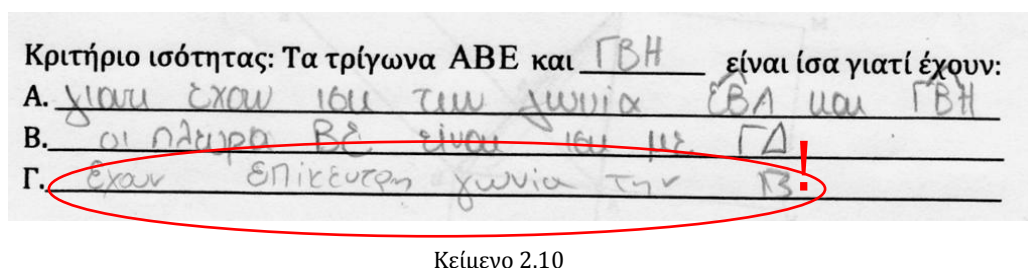 Κριτήριο ισότητας: Τα τρίγωνα ΑΒΕ και ΓΒΗ είναι ίσα γιατί έχουν:
Α. γιατι εχουν ιση την γωνία ΕΒΑ και ΓΒΗ
Β. οι πλευρα ΒΕ είναι ιση με ΓΔ
Γ. εχουν επίκεντρη γωνία την Β !
Κείμενο 2.10